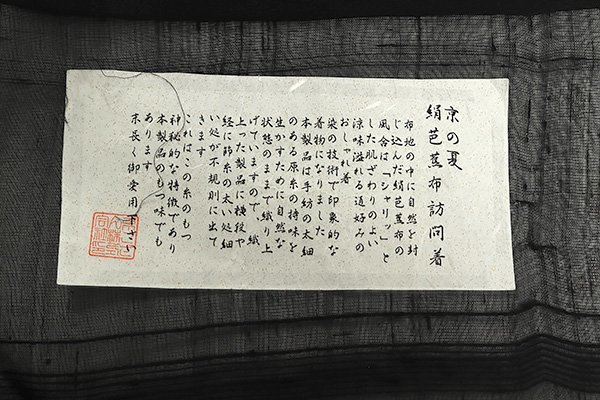 京の夏
絹芭蕉布訪問着
布地の中に自然を封
じ込んだ絹芭蕉布の
風合は「シャリッ」と
した肌ざわりのよい
涼味溢れる通好みの
おしゃれ着
染の技術で印象的な
着物になりました
本製品は手紡の太細
のある原糸の持味を
生かすために自然な
状態のままで織り上
げていますので、織
上った製品に横段や
経に節糸の太い処細
い処が不規則に出て
きます
これはこの糸のもつ
神秘的な特徴であり
本製品のもつ味でも
あります
末長く御愛用下さい